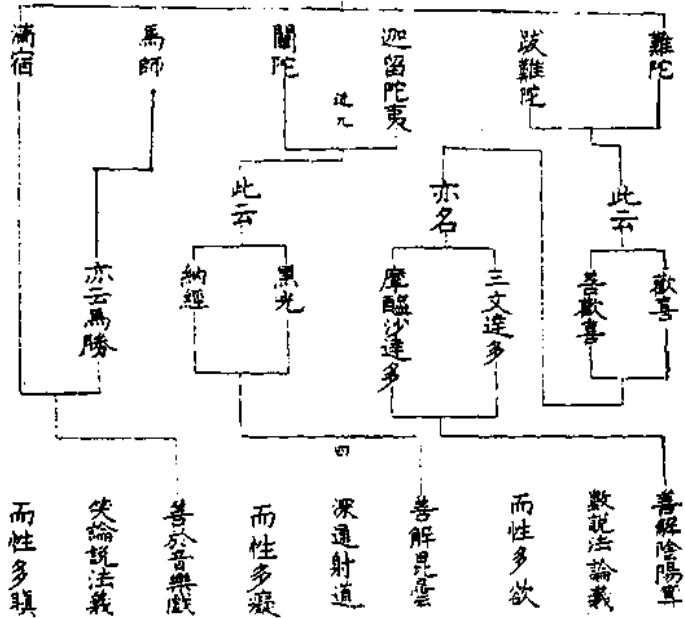 難陀
跋難陀
迦留陀夷
闡陀
馬師
滿宿
此云
歡喜
善歡喜
亦名
三文達多
摩醯沙達多
此云
黑光
納經
亦云馬勝
善解陰陽
數說法論義
而性多欲
善解毘曇
四
深通射道
而性多癡
善於音樂戲
笑論說法義
而性多瞋